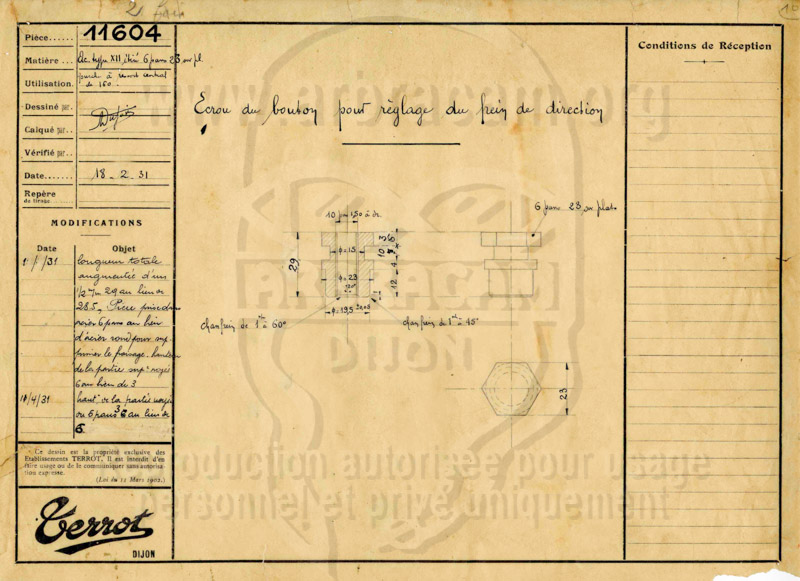 2
Pièce...... 11604
Matière... Ac. type XII étiré 6 pans 23 sur pl.
Utilisation.
de 160.
Dessiné par.
Calqué par..
Vérifié par..
Date....... 18-2-31
Repère
de tirage......
MODIFICATIONS
Date Objet
/31 longueur totale
augmentée d'un
1/2 m/m 29 au lieu de
28.5. Pièce prise dans
acier 6 pans au lieu
d'acier rond pour sup
primer le fraisage. hauteur
de la partie supre
6 au lieu de 3
/4/31 hautr de la partie
ou 6 pans 3 au lieu de
6
Ce dessin est la propriété exclusive des
Etablissements TERROT. Il est interdit d'en
faire usage ou de le communiquer sans autorisa-
tion expresse.
(Loi du 11 Mars 1902.)
Terrot
DIJON
Ecrou du bouton pour réglage du frein de direction
6 pans 23 sur plats
10 pas 150 à dr.
29
φ=15
φ=23
120°
φ=19,5 ±0,05
10
3
6
4
12
chanfrein de 1m à 60°
chanfrein de 1m à 45°
23
Conditions de Réception
www.arbracam.org
ARBRACAM
DIJON
Reproduction autorisée pour usage
personnel et privé uniquement